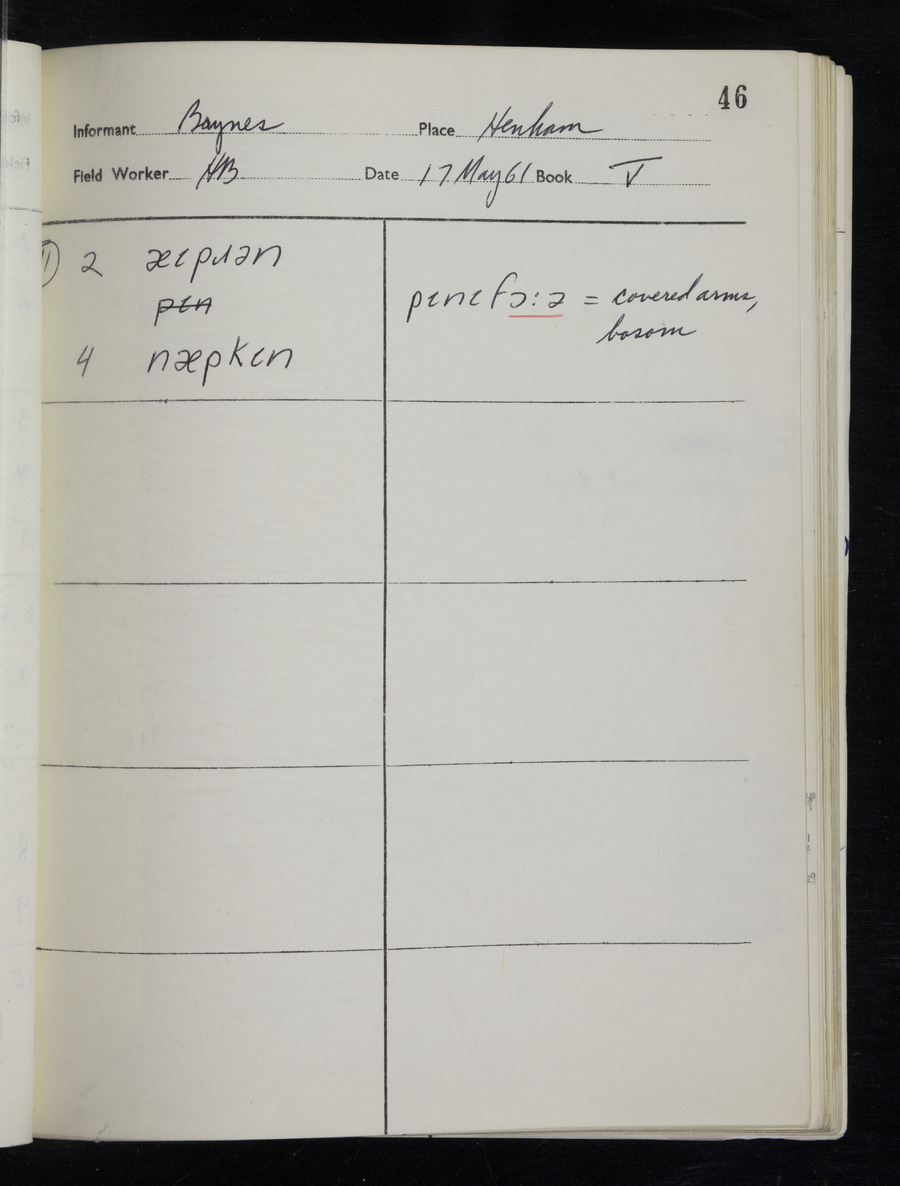 46
Informant Baynes Place Henham
Field Worker HB Date 17 May 61 Book V
11 2 æɪpɹən
pɪn
pɪnɪfɔ:ə = covered arms,
bosom
4 næpkɪn